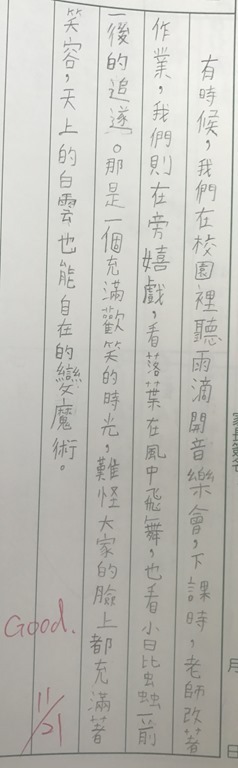 有時候，我們在校園裡聽雨滴開音樂會，下課時，老師改著
作業，我們則在旁嬉戲，看落葉在風中飛舞，也看小白比虫蝴一前
一後的追逐。那是一個充滿歡笑的時光，難怪大家的臉上都充滿著
笑容，天上的白雲也能自在的變魔術。
Good.
11/21
月
日